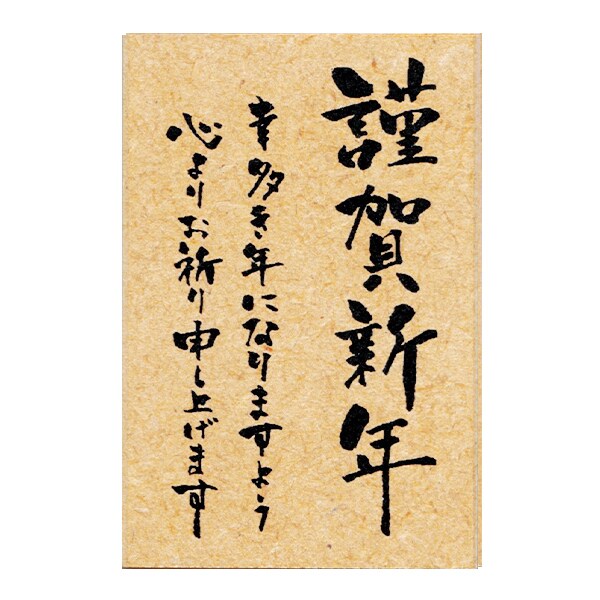 謹賀新年
幸多き年になりますよう
心よりお祈り申し上げます